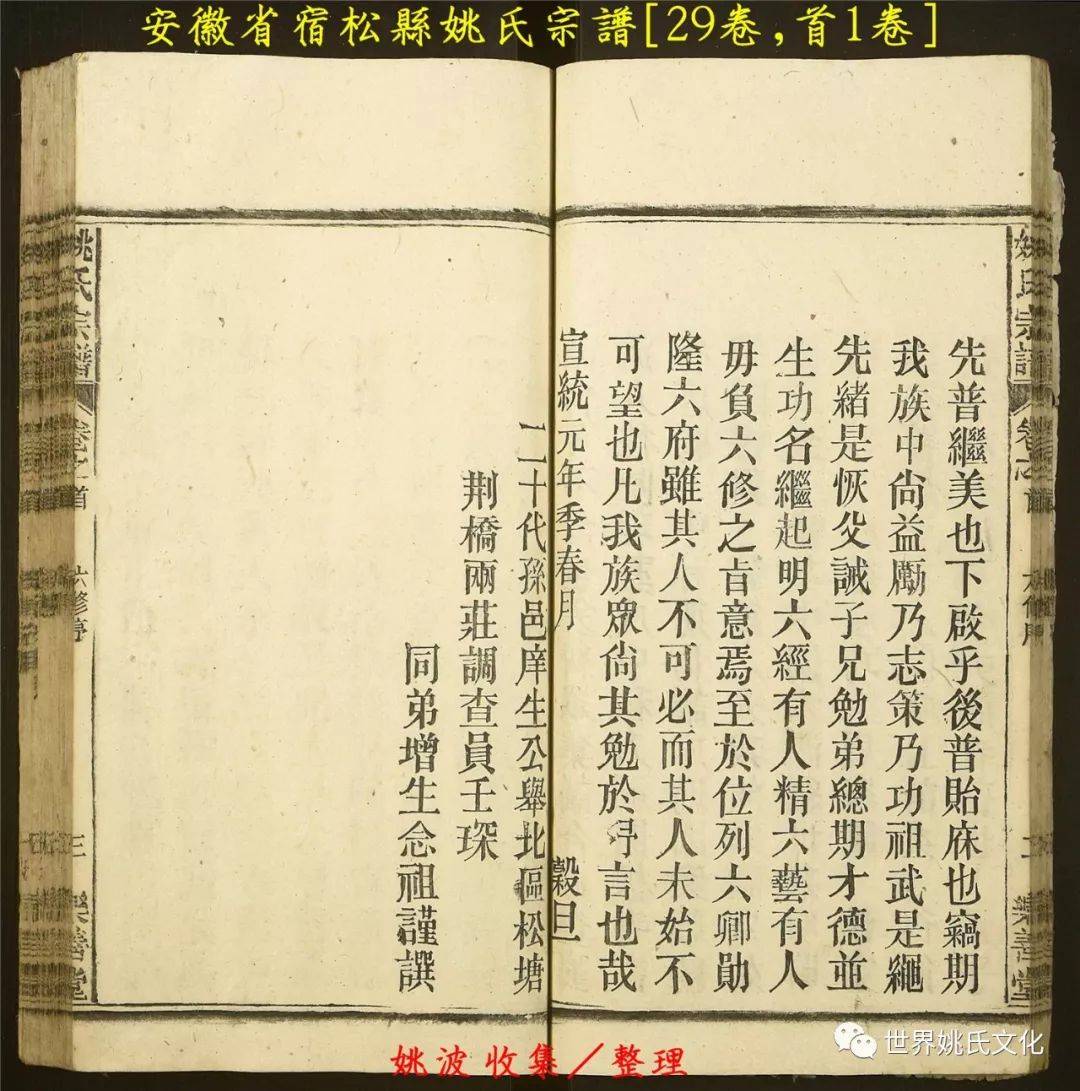 安徽省宿松縣姚氏宗譜[29卷,首1卷]
姚氏宗譜
卷之首
二
樂善堂
先普繼美也下啟乎後普貽庥也竊期
我族中尙益勵乃志策乃功祖武是繩
先緒是恢父誡子兄勉弟總期才德並
生功名繼起明六經有人精六藝有人
毋負六修之旨意焉至於位列六卿勛
隆六府雖其人不可必而其人未始不
可望也凡我族眾尙其勉於斯言也哉
宣統元年季春月 穀旦
二十代孫邑庠生公舉北區松塘
荆橋兩莊調查員壬琛
同弟增生念祖謹譔
姚氏宗譜
卷之首
六修序
三
樂善堂
姚波收集/整理
世界姚氏文化